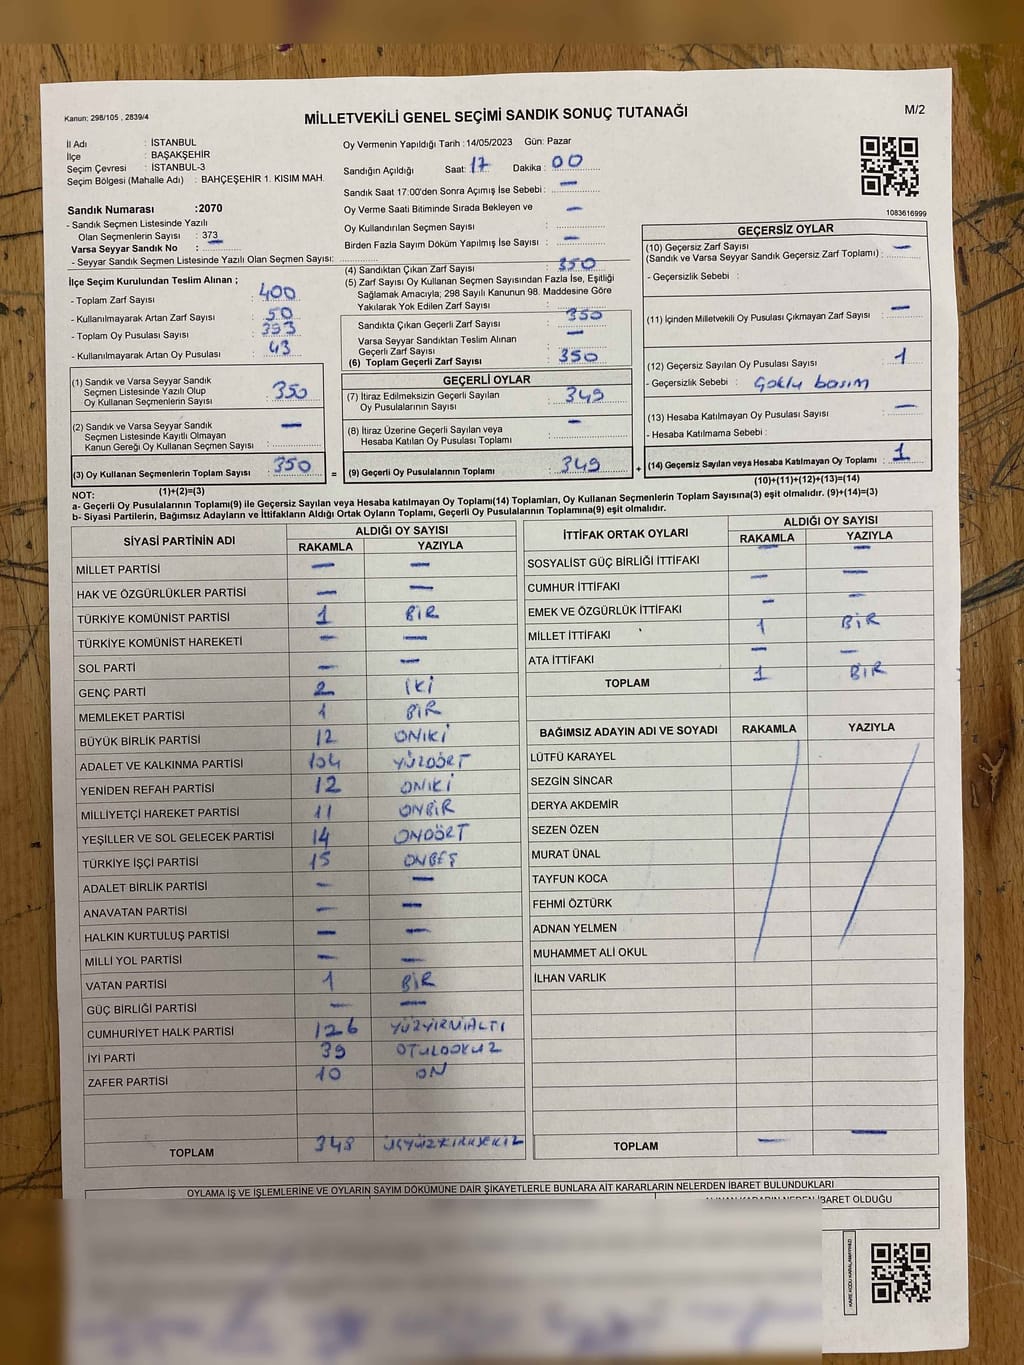 Kanun: 298/105 , 2839/4
MİLLETVEKİLİ GENEL SEÇİMİ SANDIK SONUÇ TUTANAĞI
M/2
İl Adı : İSTANBUL
İlçe : BAŞAKŞEHİR
Seçim Çevresi : İSTANBUL-3
Seçim Bölgesi (Mahalle Adı) : BAHÇEŞEHİR 1. KISIM MAH.
Sandık Numarası :2070
- Sandık Seçmen Listesinde Yazılı
Olan Seçmenlerin Sayısı : 373
Varsa Seyyar Sandık No : —
- Seyyar Sandık Seçmen Listesinde Yazılı Olan Seçmen Sayısı:
Oy Vermenin Yapıldığı Tarih :14/05/2023 Gün: Pazar
Sandığın Açıldığı Saat: 17 Dakika : 00
Sandık Saat 17:00'den Sonra Açımış İse Sebebi : —
Oy Verme Saati Bitiminde Sırada Bekleyen ve —
Oy Kullandırılan Seçmen Sayısı
Birden Fazla Sayım Döküm Yapılmış İse Sayısı : —
1083616999
İlçe Seçim Kurulundan Teslim Alınan ;
- Toplam Zarf Sayısı : 400
- Kullanılmayarak Artan Zarf Sayısı : 50
- Toplam Oy Pusulası Sayısı : 393
- Kullanılmayarak Artan Oy Pusulası : 43
(1) Sandık ve Varsa Seyyar Sandık
Seçmen Listesinde Yazılı Olup
Oy Kullanan Seçmenlerin Sayısı : 350
(2) Sandık ve Varsa Seyyar Sandık
Seçmen Listesinde Kayıtlı Olmayan
Kanun Gereği Oy Kullanan Seçmen Sayısı : —
(3) Oy Kullanan Seçmenlerin Toplam Sayısı : 350
(1)+(2)=(3)
(4) Sandıktan Çıkan Zarf Sayısı : 350
(5) Zarf Sayısı Oy Kullanan Seçmen Sayısından Fazla İse, Eşitliği
Sağlamak Amacıyla; 298 Sayılı Kanunun 98. Maddesine Göre
Yakılarak Yok Edilen Zarf Sayısı :
Sandıkta Çıkan Geçerli Zarf Sayısı : 350
Varsa Seyyar Sandıktan Teslim Alınan
Geçerli Zarf Sayısı : —
(6) Toplam Geçerli Zarf Sayısı : 350
GEÇERLİ OYLAR
(7) İtiraz Edilmeksizin Geçerli Sayılan
Oy Pusulalarının Sayısı : 349
(8) İtiraz Üzerine Geçerli Sayılan veya
Hesaba Katılan Oy Pusulası Toplamı : —
= (9) Geçerli Oy Pusulalarının Toplamı : 349 +
GEÇERSİZ OYLAR
(10) Geçersiz Zarf Sayısı —
(Sandık ve Varsa Seyyar Sandık Geçersiz Zarf Toplamı) :
- Geçersizlik Sebebi :
(11) İçinden Milletvekili Oy Pusulası Çıkmayan Zarf Sayısı : —
(12) Geçersiz Sayılan Oy Pusulası Sayısı : 1
- Geçersizlik Sebebi : Çoklu basım
(13) Hesaba Katılmayan Oy Pusulası Sayısı : —
- Hesaba Katılmama Sebebi :
(14) Geçersiz Sayılan veya Hesaba Katılmayan Oy Toplamı : 1
(10)+(11)+(12)+(13)=(14)
NOT:
a- Geçerli Oy Pusulalarının Toplamı(9) ile Geçersiz Sayılan veya Hesaba katılmayan Oy Toplamı(14) Toplamları, Oy Kullanan Seçmenlerin Toplam Sayısına(3) eşit olmalıdır. (9)+(14)=(3)
b- Siyasi Partilerin, Bağımsız Adayların ve İttifakların Aldığı Ortak Oyların Toplamı, Geçerli Oy Pusulalarının Toplamına(9) eşit olmalıdır.
SİYASİ PARTİNİN ADI ALDIĞI OY SAYISI
RAKAMLA YAZIYLA
MİLLET PARTİSİ — —
HAK VE ÖZGÜRLÜKLER PARTİSİ — —
TÜRKİYE KOMÜNİST PARTİSİ 1 BİR
TÜRKİYE KOMÜNİST HAREKETİ — —
SOL PARTİ — —
GENÇ PARTİ 2 İKİ
MEMLEKET PARTİSİ 1 BİR
BÜYÜK BİRLİK PARTİSİ 12 ONİKİ
ADALET VE KALKINMA PARTİSİ 104 YÜZDÖRT
YENİDEN REFAH PARTİSİ 12 ONİKİ
MİLLİYETÇİ HAREKET PARTİSİ 11 ONBİR
YEŞİLLER VE SOL GELECEK PARTİSİ 14 ONDÖRT
TÜRKİYE İŞÇİ PARTİSİ 15 ONBEŞ
ADALET BİRLİK PARTİSİ — —
ANAVATAN PARTİSİ — —
HALKIN KURTULUŞ PARTİSİ — —
MİLLİ YOL PARTİSİ — —
VATAN PARTİSİ 1 BİR
GÜÇ BİRLİĞİ PARTİSİ — —
CUMHURİYET HALK PARTİSİ 126 YÜZYİRMİALTI
İYİ PARTİ 39 OTUZDOKUZ
ZAFER PARTİSİ 10 ON
TOPLAM 348 ÜÇYÜZKIRKSEKİZ
İTTİFAK ORTAK OYLARI ALDIĞI OY SAYISI
RAKAMLA YAZIYLA
SOSYALİST GÜÇ BİRLİĞİ İTTİFAKI — —
CUMHUR İTTİFAKI — —
EMEK VE ÖZGÜRLÜK İTTİFAKI — —
MİLLET İTTİFAKI 1 BİR
ATA İTTİFAKI — —
TOPLAM 1 BİR
BAĞIMSIZ ADAYIN ADI VE SOYADI RAKAMLA YAZIYLA
LÜTFÜ KARAYEL
SEZGİN SİNCAR
DERYA AKDEMİR
SEZEN ÖZEN
MURAT ÜNAL
TAYFUN KOCA
FEHMİ ÖZTÜRK
ADNAN YELMEN
MUHAMMET ALİ OKUL
İLHAN VARLIK
TOPLAM — —
OYLAMA İŞ VE İŞLEMLERİNE VE OYLARIN SAYIM DÖKÜMÜNE DAİR ŞİKAYETLERLE BUNLARA AİT KARARLARIN NELERDEN İBARET BULUNDUKLARI
ALINAN KARARIN NEDEN İBARET OLDUĞU
KARE KODU KARALAMAYINIZ!